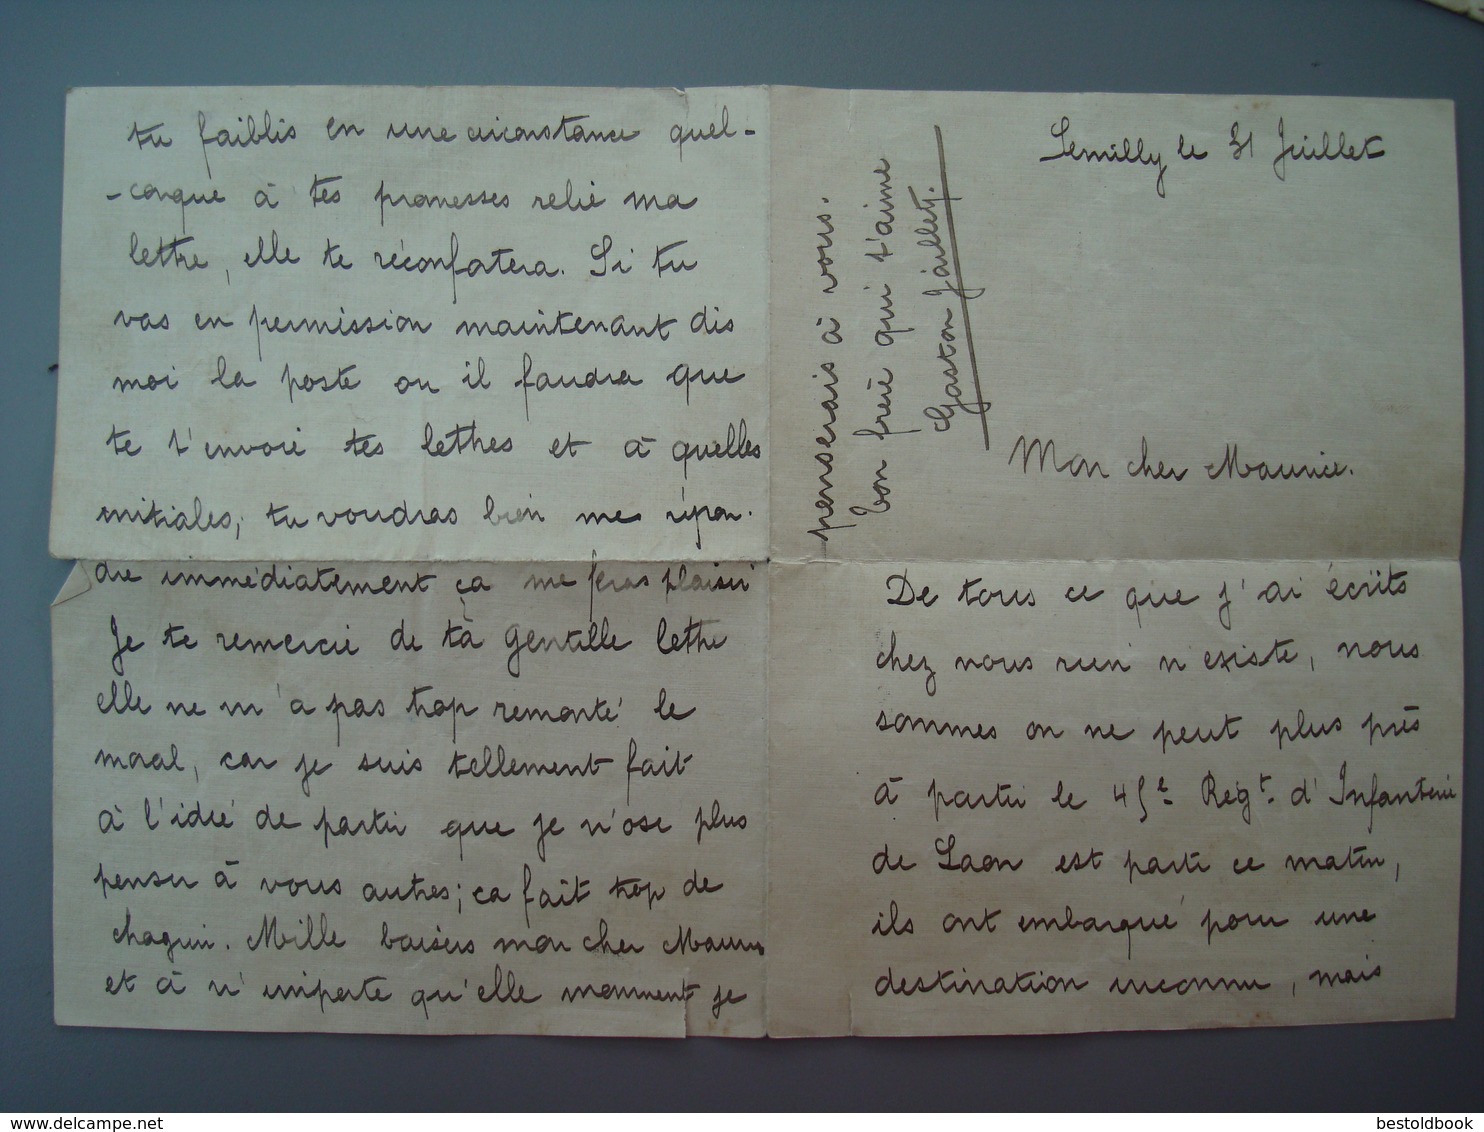 Semilly le 31 Juillet
Mon cher Maurice.
De tous ce que j'ai écrits
chez nous rien n'existe, nous
sommes on ne peut plus près
à partir le 45e Régt. d'Infanterie
de Laon est parti ce matin,
ils ont embarqué pour une
destination inconnu, mais
tu faiblis en une circonstance quel-
-conque à tes promesses relie ma
lettre, elle te réconfortera. Si tu
vas en permission maintenant dis
moi la poste ou il faudra que
te t'envoie tes lettres et à quelles
initiales, tu voudras bien me répon-
dre immédiatement ça me feras plaisir
Je te remercie de ta gentille lettre
elle ne m'a pas trop remonté le
moral, car je suis tellement fait
à l'idée de partir que je n'ose plus
penser à vous autres; ça fait trop de
chagrin. Mille baisers mon cher Maurice
et à n'importe qu'elle momment je
penserais à vous.
ton frère qui t'aime
Gaston Jaillet.
bestoldbook
www.delcampe.net